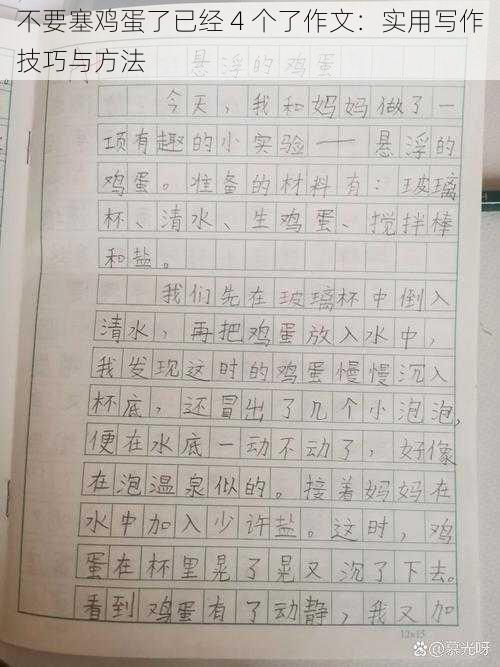 不要塞鸡蛋了已经 4 个了作文：实用写作
技巧与方法
悬浮的鸡蛋
今天，我和妈妈做了一
项有趣的小实验——悬浮的
鸡蛋。准备的材料有：玻璃
杯、清水、生鸡蛋、搅拌棒
和盐。
我们先在玻璃杯中倒入
清水，再把鸡蛋放入水中，
我发现这时的鸡蛋慢慢沉入
杯底，还冒出了几个小泡泡，
便在水底一动不动了，好像
在泡温泉似的。接着妈妈在
水中加入少许盐。这时，鸡
蛋在杯里晃了晃又沉了下去。
看到鸡蛋有了动静，我又加
12×15
慕光呀